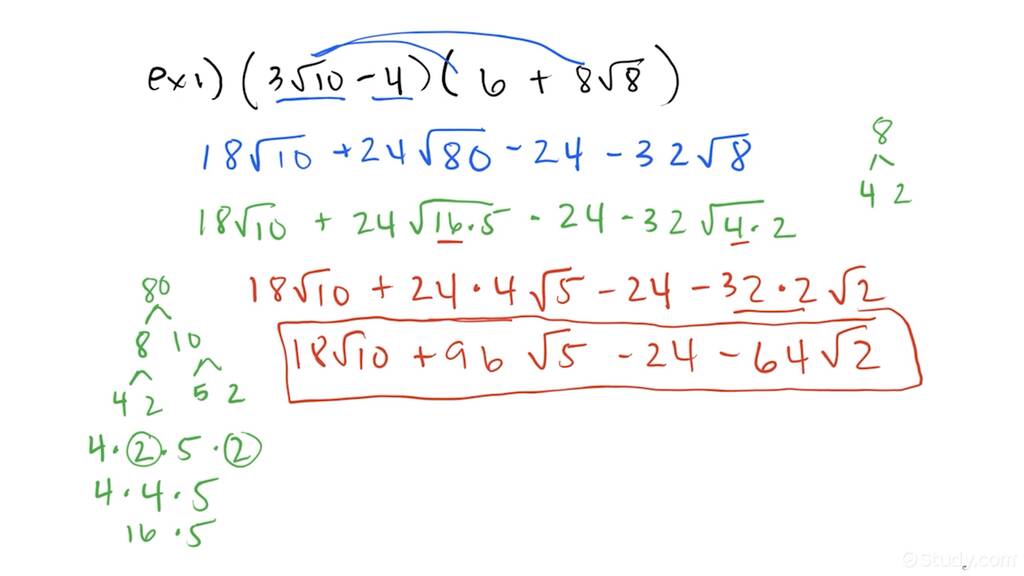 ex1) (3√10 - 4)(6 + 8√8)
18√10 + 24√80 - 24 - 32√8
18√10 + 24√16·5 - 24 - 32√4·2
18√10 + 24·4√5 - 24 - 32·2√2
18√10 + 96√5 - 24 - 64√2
8
4 2
80
8 10
4 2 5 2
4·2·5·2
4·4·5
16·5
Study.com